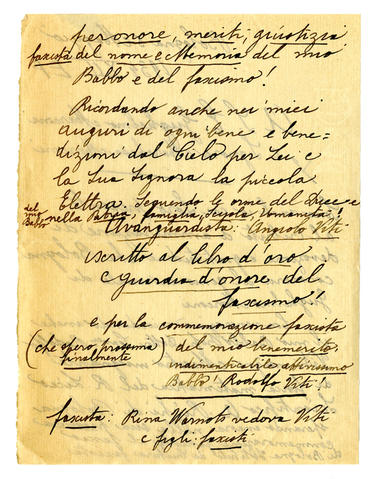 per onore, meriti, giustizia
fascista del nome e Memoria del mio
Babbo e del fascismo!
Ricordando anche nei miei
auguri di ogni bene e bene-
dizioni dal Cielo per Lei e
la Sua Signora la piccola
Elettra. Seguendo le orme del Duce e
del mio Babbo nella Patria, famiglia, Scuola, Umanità!
Avanguardista: Angiolo Viti
iscritto al libro d'oro
e guardia d'onore del
fascismo!
e per la commemorazione fascista
(che spero, prossima finalmente) del mio benemerito,
indimenticabile
Babbo! Rodolfo Viti!
fascista: Rina Warnots vedova Viti
e figli: fascisti.